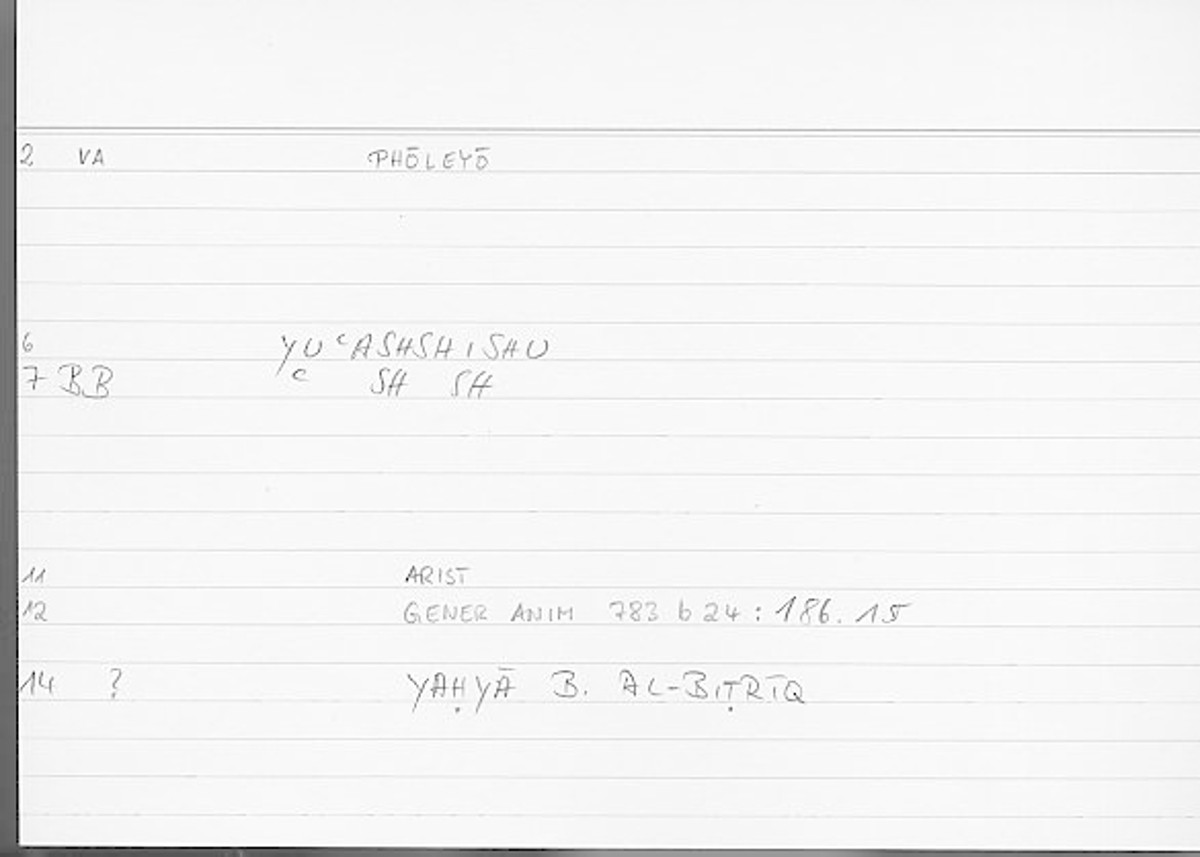 2 VA PHŌLEYŌ
6 YU ᶜASHSHISHU
7 BB c SH SH
11 ARIST
12 GENER ANIM 783 b 24 : 186. 15
14 ? YAḤYĀ B. AL-BIṬRĪQ